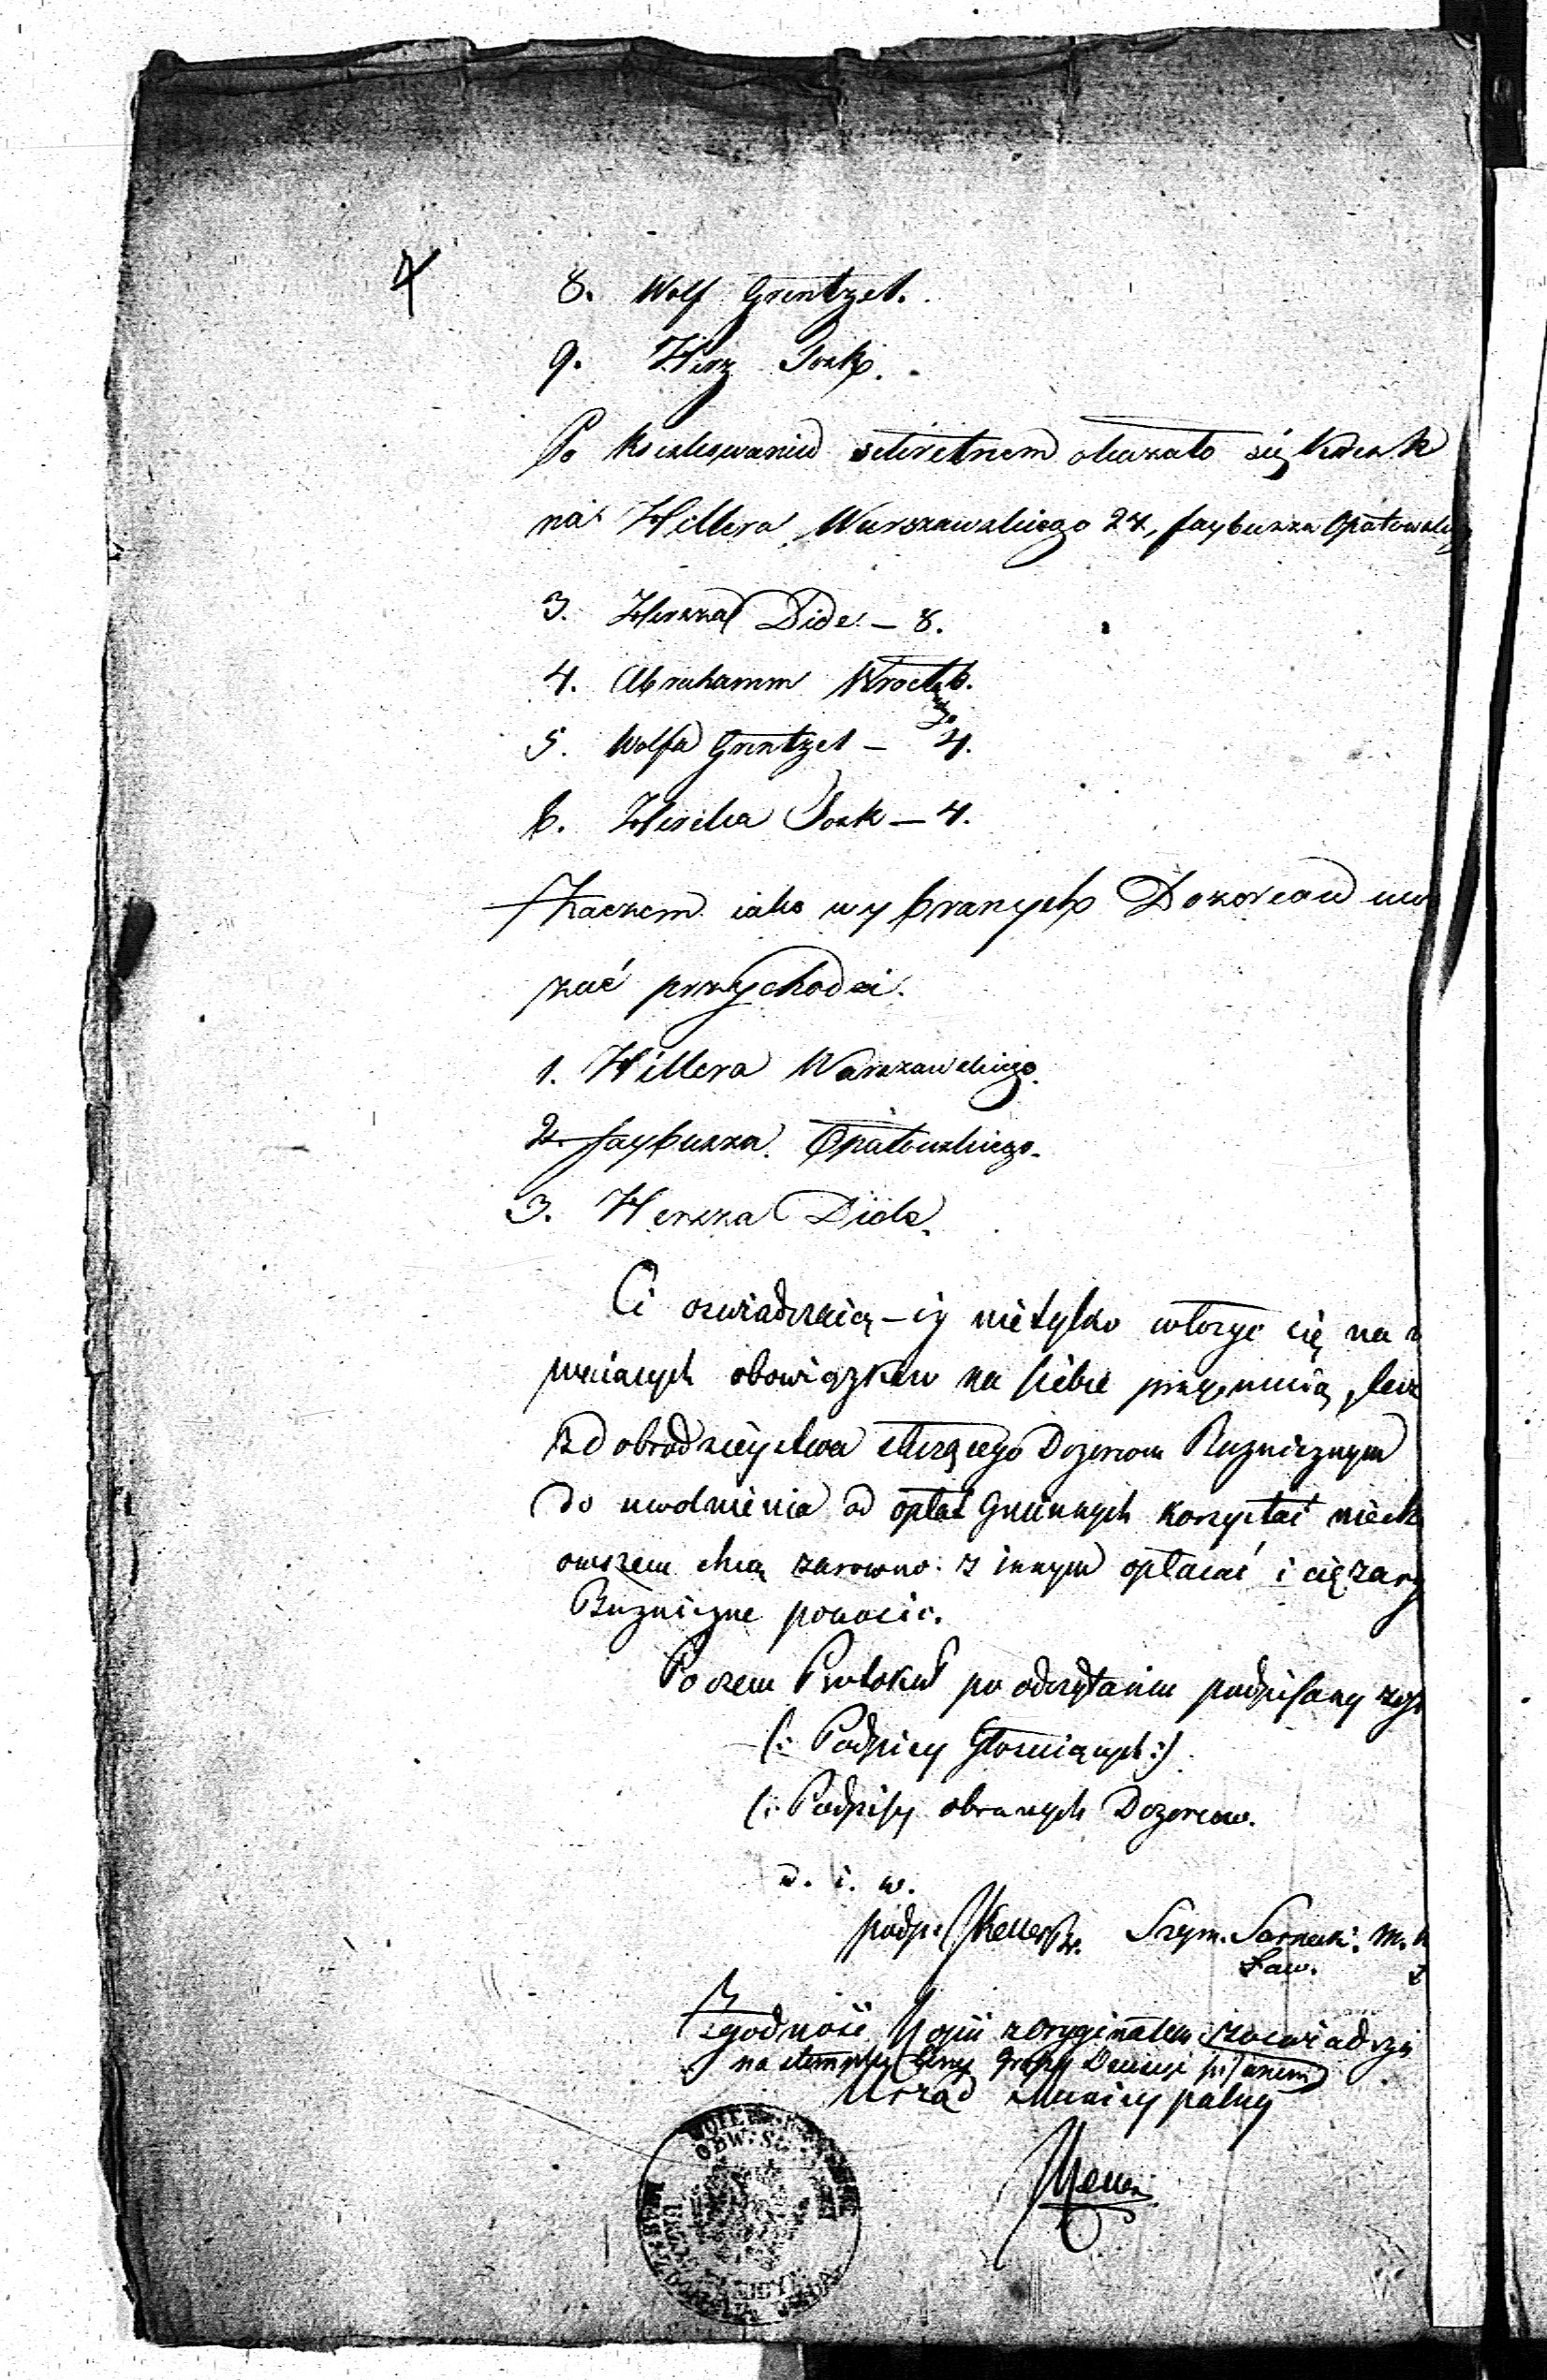 4
8. Wolf Grintzel.
9. Hersz Josk.
Po kreskowaniu sekretnem okazało się kresek
na Hillera Warszawskiego 24, Laybusza Opatowskieg
3. Hersza Dide – 8.
4. Abrahamm Wrocł 6.
5. Wolfa Grintzel – 4.
6. Herszka Josk – 4.
Zaczem iako wybranych Dozorców uwa
żać przychodzi.
1. Hillera Warszawskiego.
2. Laybusza Opatowskiego.
3. Hersza Dide.
Ci oswiadczaią – iż nietylko włożyc się na
obowiązków na siebie przyjmuią, lecz
z dobrodzieystwa służącego Dozorcom Bużnicznym
do uwolnienia od opłat Gminnych korzystać niechc
owszem chcą zarowno z innym opłacać i ciężary
Bużniczne ponosić.
Poczem Protokuł po odczytaniu podpisany
(: Podpisy Głosuiących :)
(: Podpisy obranych Dozorcow.
u. i. w.
podp. Keller Szym. Sarnecki. m.
Ław.
Zgodność Kopii z Oryginałem zaświadcza
na stemplu Ceny Groszy
Urząd Municypalny
Keller